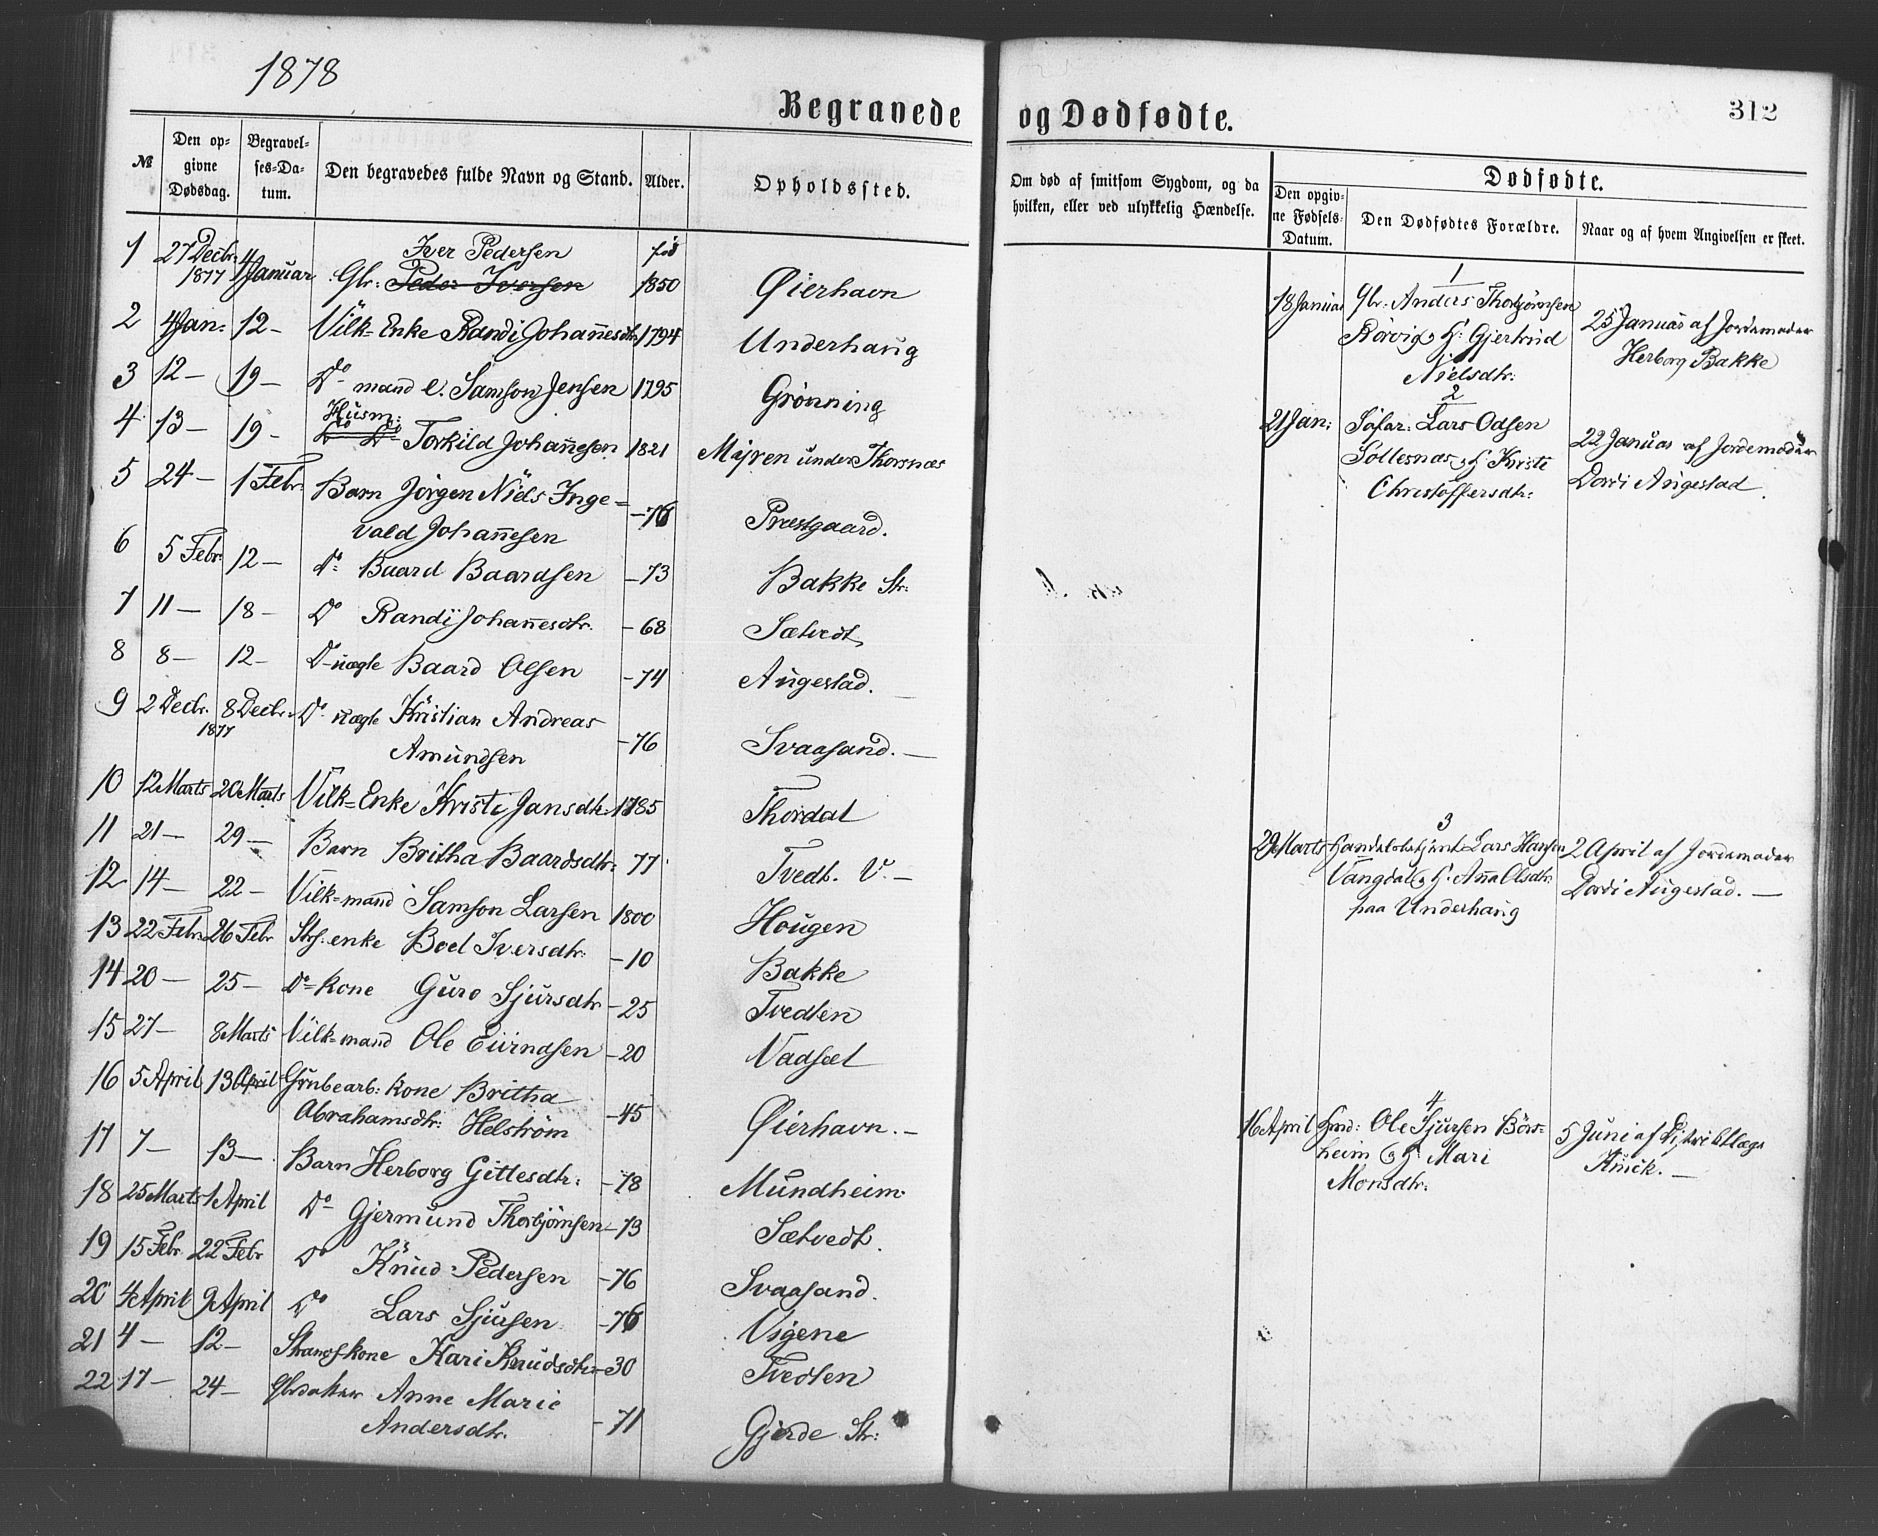 1878
Begravede og Dødfødte.
312
№ Den op- givne Dødsdag. Begravel- ses-Da- tum. Den begravedes fulde Navn og Stand. Alder. Opholdssted.
Om død af smitsom Sygdom, og da hvilken, eller ved ulykkelig Hændelse.
Dødfødte.
Den opgiv- ne Fødsels- Datum. Den Dødfødtes Forældre. Naar og af hvem Angivelsen er skeet.
1 27 Decbr: 1877 4 Januar Gbr: Peder Iversen Iver Pedersen 1850 Øierhavn
2 4 Jan: 12 – Vilk=Enke Randi Johannesdtr 1794 Underhaug
3 12 – 19 – Do mand e. Samson Jensen 1795 Grønning
4 13 – 19 – Husm: Torkild Johannesen 1821 Myren under Thorsnæs
5 24 – 1 Febr: Barn Jørgen Niels Inge=
vald Johannesen – 76 Præstgaard.
6 5 Febr: 12 – Do Baard Baardsen – 73 Bakke Str:
7 11 – 18 – Do Randi Johannesdtr. – 68 Sætvedt
8 8 – 12 – D–uægte Baard Olsen – 74 Augestad. –
9 2 Decbr. 1877 8 Decbr. Do uægte Kristian Andreas
Amundsen – 76 Svaasand. –
10 12 Marts 20 Marts Vilk=Enke Kristi Jansdtr: 1785 Thordal
11 21 – 29 – Barn Britha Baardsdtr: 77 Tvedt. V. –
12 14 – 22 – Vilk=mand Samson Larsen 1800 Hougen
13 22 Febr: 26 Febr Strs. enke Boel Iversdtr: – 10 Bakke
14 20 – 25 – Do kone Guro Sjursdtr – 25 Tvedten
15 27 – 8 Marts Vilk=mand Ole Eivindsen – 20 Vadsæl
16 5 April 13 April Grubearb: kone Britha
Abrahamsdtr: Helstrøm – 45 Øierhavn. –
17 7 – 13 – Barn Herborg Gittlesdtr: – 78 Mundheim.
18 25 Marts 1 April Do Gjermund Thorbjørnsen – 73 Sætvedt.
19 15 Febr. 22 Febr Do Knud Pedersen – 76 Svaasand.
20 4 April 9 April Do Lars Sjursen – 76 Vigene
21 4 – 12 – Strandskone Kari Knudsdtr: – 30 Tvedten
22 17 – 24 – Gbrdatter Anne Marie
Andersdtr. – 71 Gjerde Str:
1
18 Januar Gbr. Anders Thorbjørnsen
Rørvig og H: Gjertrud
Nielsdtr:
25 Januar af Jordemoder
Herborg Bakke
2
21 Jan: Søfar: Lars Odsen
Sollesnæs og H. Kristi
Christoffersdtr:
22 Januar af Jordemoder
Dordi Augestad.
3
29 Marts Handelsbetjent Lars Hansen
Vangdal og H. Anna Olsdtr:
paa Underhaug
2 April af Jordemoder
Dordi Augestad. –
4
16 April Hmd: Ole Sjursen Børs=
heim og H: Mari
Monsdtr:
5 Juni af Distriktlæge